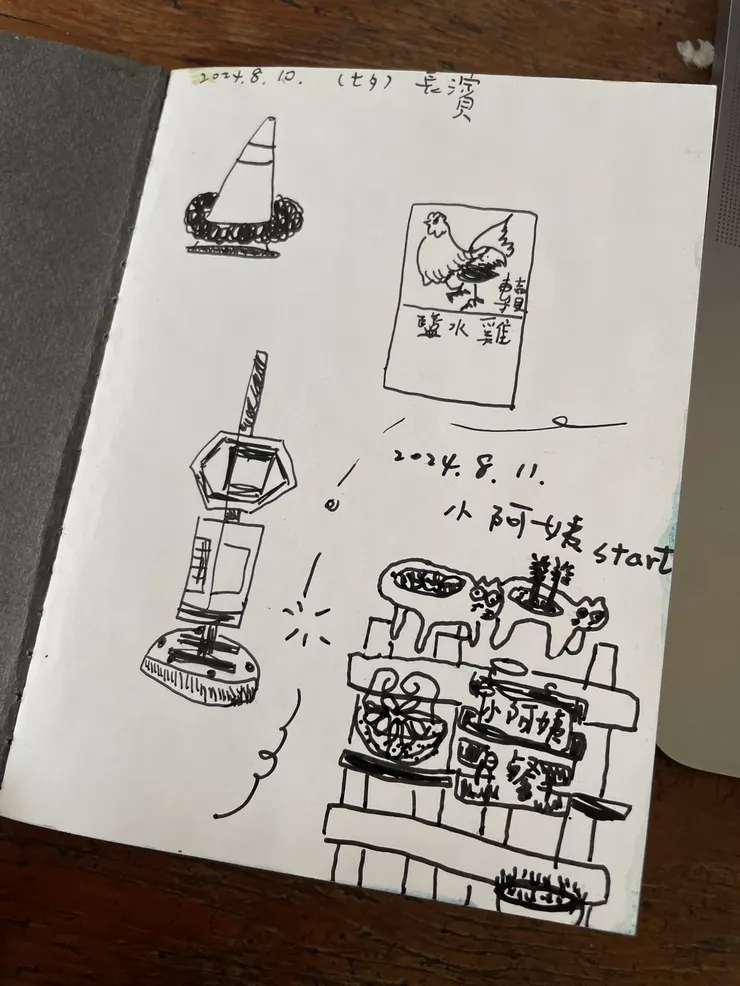 2024.8.10. (七夕) 長濱
鹽水雞
2024.8.11.
小阿姨 start
小阿姨